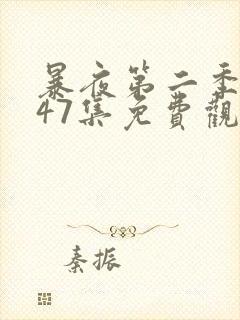 暴夜第二季
47集免費觀
秦振